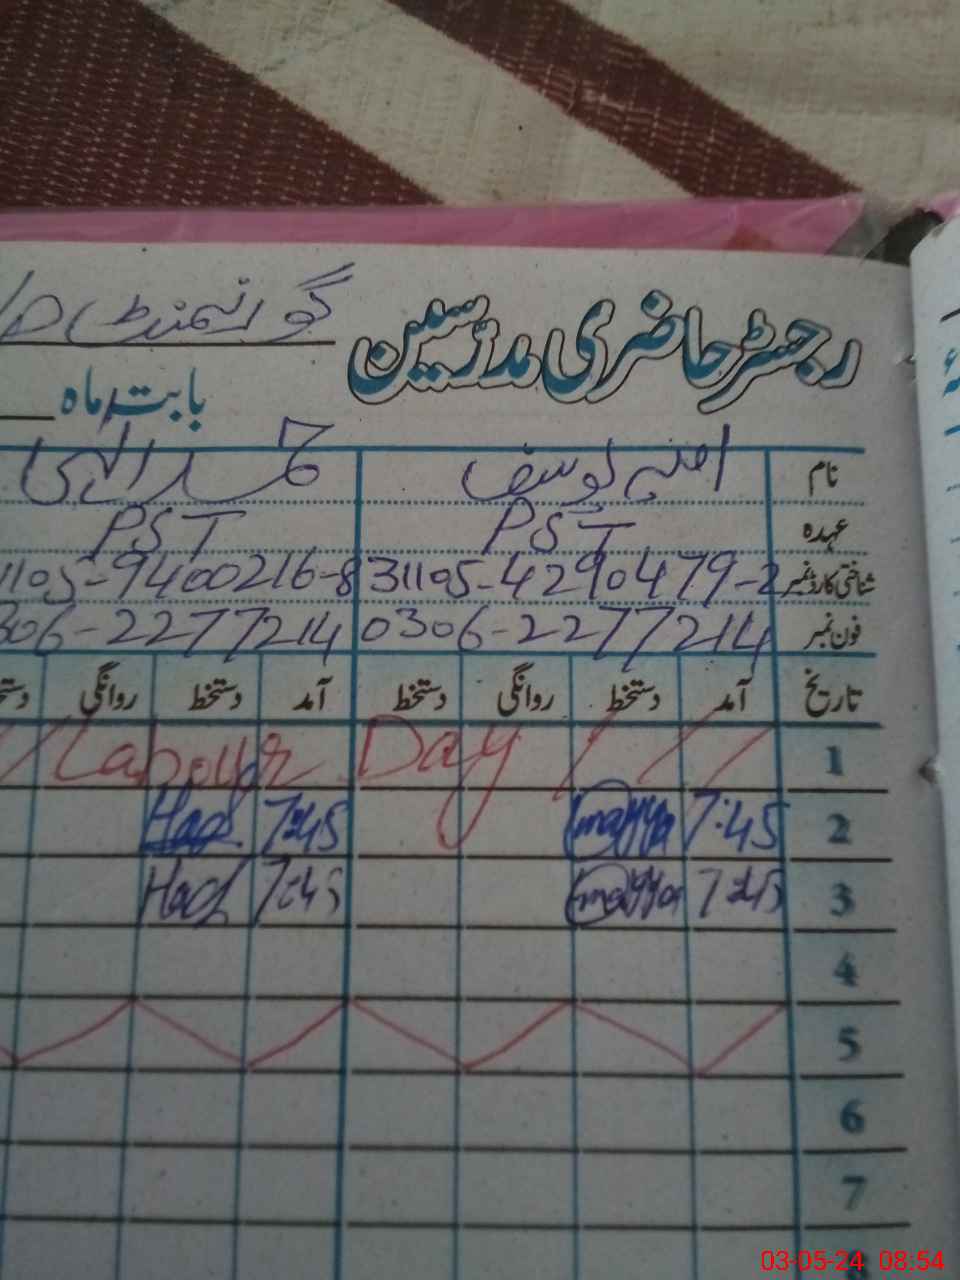 رجسٹر حاضری مدرسین گورنمنٹ
بابت ماہ
نام
عہدہ PST PST
شناختی کارڈ نمبر 31105-4290479-2 1105-9400216-8
فون نمبر 0306-2277214 306-2277214
تاریخ آمد دستخط روانگی دستخط آمد دستخط روانگی
1 Labour Day
2 7:45 7:45 Had
3 7:45 7:45 Had
4
5
6
7
03-05-24 08:54